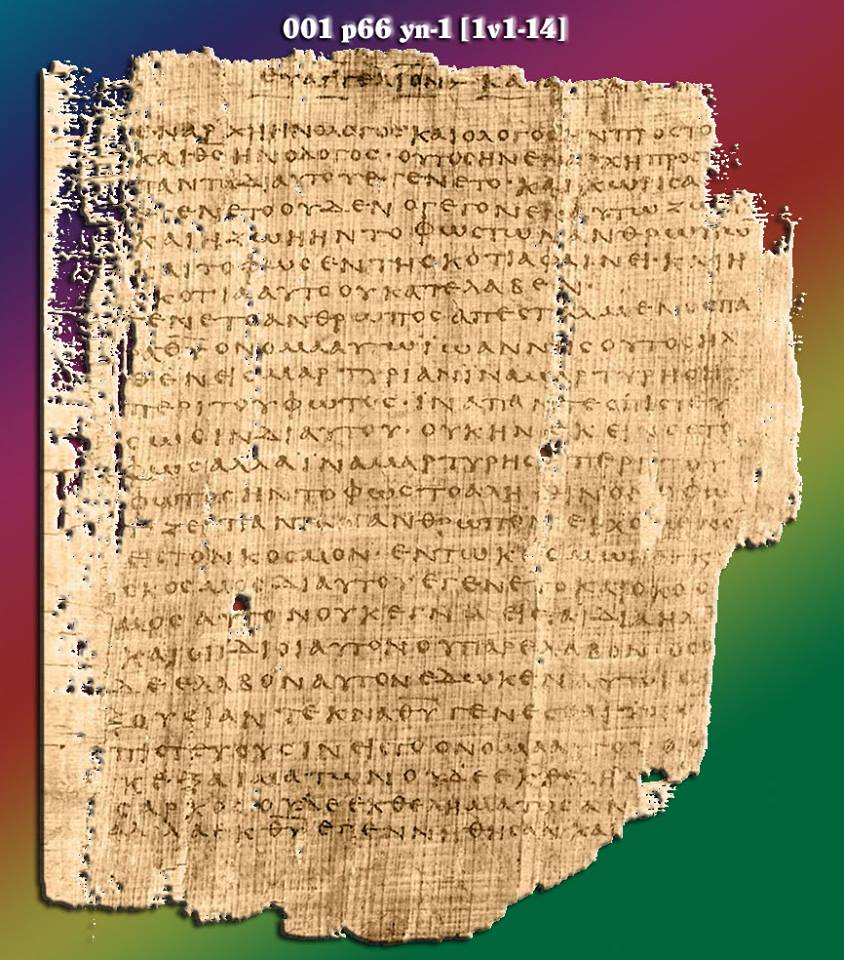 001 p66 yn-1 [1v1-14]
ΕΥΑΓΓΕΛΙΟΝ ΚΑΤ
ΕΝ ΑΡΧΗ ΗΝ Ο ΛΟΓΟϹ ΚΑΙ Ο ΛΟΓΟϹ ΗΝ ΠΡΟϹ ΤΟ
ΚΑΙ ΘϹ ΗΝ Ο ΛΟΓΟϹ · ΟΥΤΟϹ ΗΝ ΕΝ ΑΡΧΗ ΠΡΟϹ
ΠΑΝΤΑ ΔΙ ΑΥΤΟΥ ΕΓΕΝΕΤΟ · ΚΑΙ ΧΩΡΙϹ Α
ΕΓΕΝΕΤΟ ΟΥΔΕΝ Ο ΓΕΓΟΝΕΝ ΑΥΤΩ ΖΩ
ΚΑΙ Η ΖΩΗ ΗΝ ΤΟ ΦΩϹ ΤΩΝ ΑΝΘΡΩΠΩ
ΚΑΙ ΤΟ ΦΩϹ ΕΝ ΤΗ ϹΚΟΤΙΑ ΦΑΙΝΕΙ · ΚΑΙ Η
ϹΚΟΤΙΑ ΑΥΤΟ ΟΥ ΚΑΤΕΛΑΒΕΝ ·
ΕΓΕΝΕΤΟ ΑΝΘΡΩΠΟϹ ΑΠΕϹΤΑΛΜΕΝΟϹ ΠΑ
ΡΑ ΘΥ ΟΝΟΜΑ ΑΥΤΩ ΙΩΑΝΝΗϹ ΟΥΤΟϹ ΗΛ
ΘΕΝ ΕΙϹ ΜΑΡΤΥΡΙΑΝ ΙΝΑ ΜΑΡΤΥΡΗϹΗ
ΠΕΡΙ ΤΟΥ ΦΩΤΟϹ · ΙΝΑ ΠΑΝΤΕϹ ΠΙϹΤΕΥ
ϹΩϹΙΝ ΔΙ ΑΥΤΟΥ · ΟΥΚ ΗΝ ΕΚΕΙΝΟϹ ΤΟ
ΦΩϹ ΑΛΛΑ ΙΝΑ ΜΑΡΤΥΡΗϹΗ ΠΕΡΙ ΤΟΥ
ΦΩΤΟϹ ΗΝ ΤΟ ΦΩϹ ΤΟ ΑΛΗΘΙΝΟΝ Ο ΦΩ
ΤΙΖΕΙ ΠΑΝΤΑ ΑΝΘΡΩΠΟΝ ΕΡΧΟΜΕΝΟ
ΕΙϹ ΤΟΝ ΚΟϹΜΟΝ · ΕΝ ΤΩ ΚΟϹΜΩ ΗΝ Κ
Ο ΚΟϹΜΟϹ ΔΙ ΑΥΤΟΥ ΕΓΕΝΕΤΟ ΚΑΙ Ο ΚΟϹ
ΜΟϹ ΑΥΤΟΝ ΟΥΚ ΕΓΝΩ ΕΙϹ ΤΑ ΙΔΙΑ ΗΛΘ
ΚΑΙ ΟΙ ΙΔΙΟΙ ΑΥΤΟΝ ΟΥ ΠΑΡΕΛΑΒΟΝ ΟϹΟΙ
ΔΕ ΕΛΑΒΟΝ ΑΥΤΟΝ ΕΔΩΚΕΝ ΑΥΤΟΙϹ
ΞΟΥϹΙΑΝ ΤΕΚΝΑ ΘΥ ΓΕΝΕϹΘΑΙ ΤΟΙϹ
ΠΙϹΤΕΥΟΥϹΙΝ ΕΙϹ ΤΟ ΟΝΟΜΑ ΑΥΤΟΥ ΟΙ
Κ ΕΞ ΑΙΜΑΤΩΝ ΟΥΔΕ ΕΚ ΘΕΛΗΜΑ
ϹΑΡΚΟϹ ΟΥΔΕ ΕΚ ΘΕΛΗΜΑΤΟϹ ΑΝ
ΑΛΛΑ ΕΚ ΘΥ ΕΓΕΝΝΗΘΗϹΑΝ ΚΑΙ